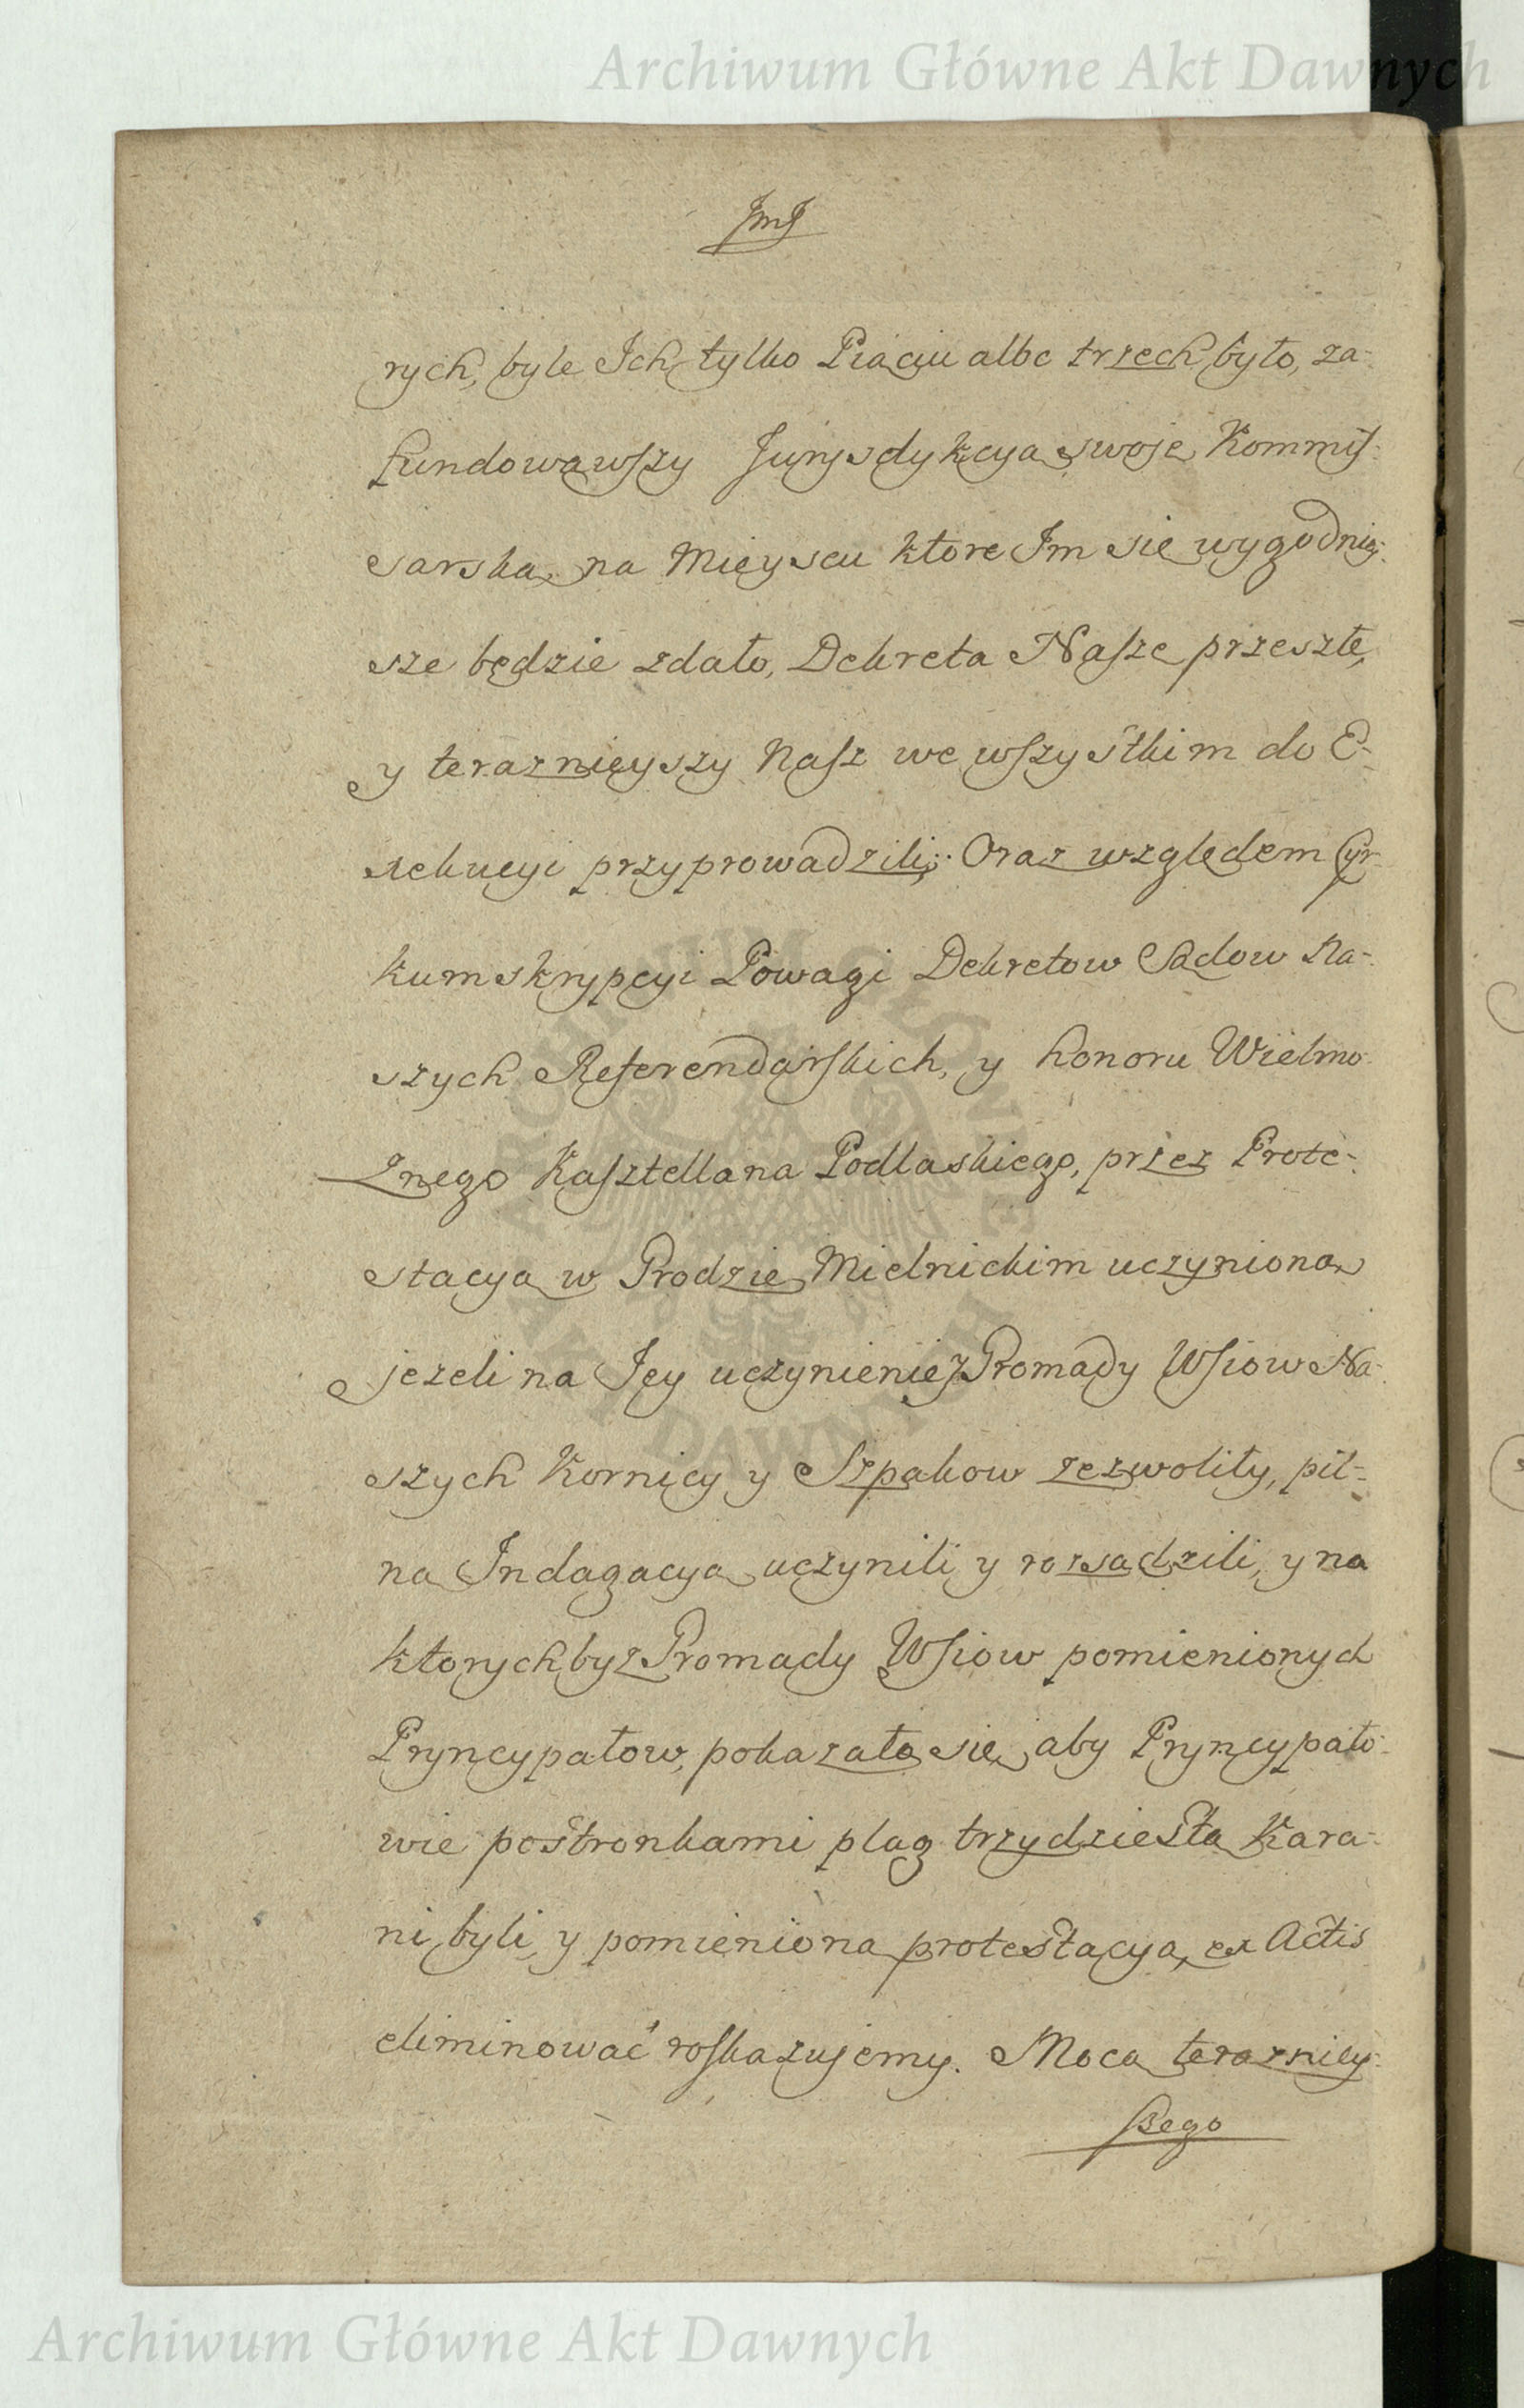 Archiwum Główne Akt Dawnych
JmJ
rych, byle Ich tylko Piąciu albo trzech było, za-
fundowawszy Jurysdykcyą swoję Kommis-
sarską, na Mieyscu ktore Im się wygodniey-
sze będzie zdało, Dekreta Nasze przeszłe,
y teraznieyszy Nasz we wszystkim do E-
xekucyi przyprowadzili; Oraz względem Cyr-
kumskrypcyi Powagi Dekretow Sądow Na-
szych Referendarskich, y honoru Wielmo-
żnego Kasztellana Podlaskiego, przez Prote-
stacyą w Grodzie Mielnickim uczynioną
jezeli na Jey uczynienie Gromady Wsiow Na-
szych Kornicy y Szpakow zezwoliły, pil-
ną Indagacyą uczynili y rozsądzili, y na
ktorychby z Gromady Wsiow pomienionych
Pryncypałow, pokazało się, aby Pryncypało-
wie postronkami plag trzydziestą Kara-
ni byli, y pomienioną protestacyą, ex Actis
eliminować roskazujemy. Mocą terazniey-
szego
Archiwum Główne Akt Dawnych